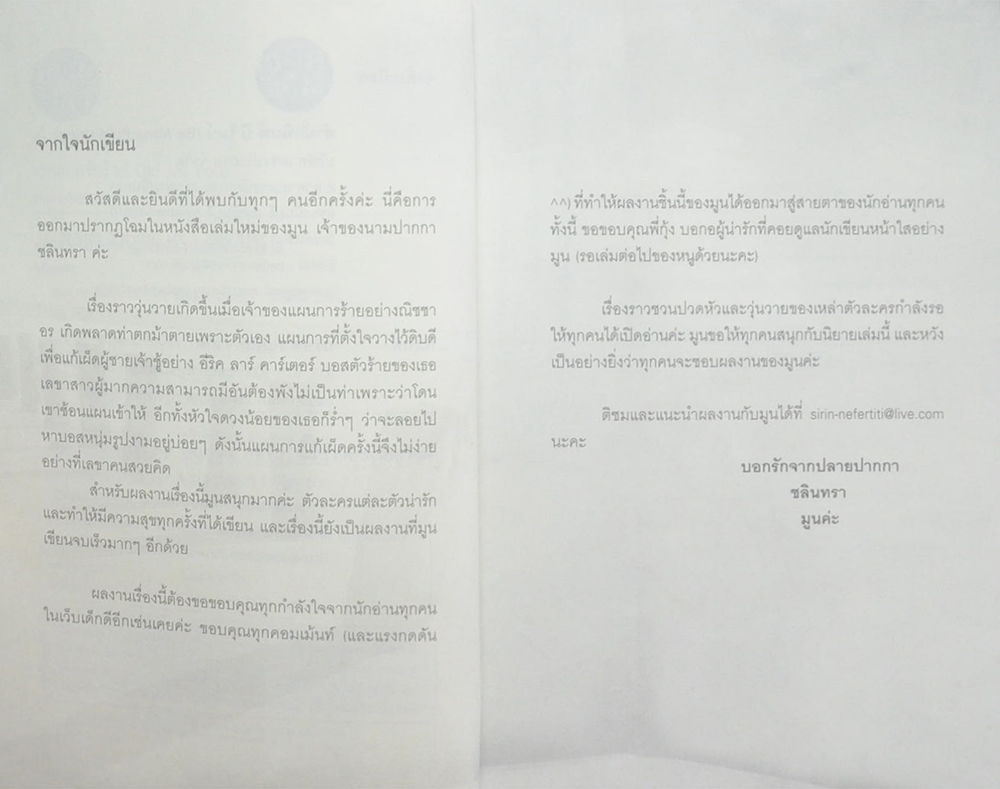 จากใจนักเขียน
สวัสดีและยินดีที่ได้พบกับทุกๆ คนอีกครั้งค่ะ นี่คือการ
ออกมาปรากฏโฉมในหนังสือเล่มใหม่ของมูน เจ้าของนามปากกา
ชลินทรา ค่ะ
เรื่องราววุ่นวายเกิดขึ้นเมื่อเจ้าของแผนการร้ายอย่างณิชชา
อร เกิดพลาดท่าตกม้าตายเพราะตัวเอง แผนการที่ตั้งใจวางไว้ดิบดี
เพื่อแก้เผ็ดผู้ชายเจ้าชู้อย่าง อีริค ลาร์ คาร์เตอร์ บอสตัวร้ายของเธอ
เลขาสาวผู้มากความสามารถมีอันต้องพังไม่เป็นท่าเพราะว่าโดน
เขาซ้อนแผนเข้าให้ อีกทั้งหัวใจดวงน้อยของเธอก็ร่ำๆ ว่าจะลอยไป
หาบอสหนุ่มรูปงามอยู่บ่อยๆ ดังนั้นแผนการแก้เผ็ดครั้งนี้จึงไม่ง่าย
อย่างที่เลขาคนสวยคิด
สำหรับผลงานเรื่องนี้มูนสนุกมากค่ะ ตัวละครแต่ละตัวน่ารัก
และทำให้มีความสุขทุกครั้งที่ได้เขียน และเรื่องนี้ยังเป็นผลงานที่มูน
เขียนจบเร็วมากๆ อีกด้วย
ผลงานเรื่องนี้ต้องขอขอบคุณทุกกำลังใจจากนักอ่านทุกคน
ในเว็บเด็กดีอีกเช่นเคยค่ะ ขอบคุณทุกคอมเม้นท์ (และแรงกดดัน
^^) ที่ทำให้ผลงานชิ้นนี้ของมูนได้ออกมาสู่สายตาของนักอ่านทุกคน
ทั้งนี้ ขอขอบคุณพี่กุ้ง บอกอผู้น่ารักที่คอยดูแลนักเขียนหน้าใสอย่าง
มูน (รอเล่มต่อไปของหนูด้วยนะคะ)
เรื่องราวชวนปวดหัวและวุ่นวายของเหล่าตัวละครกำลังรอ
ให้ทุกคนได้เปิดอ่านค่ะ มูนขอให้ทุกคนสนุกกับนิยายเล่มนี้ และหวัง
เป็นอย่างยิ่งว่าทุกคนจะชอบผลงานของมูนค่ะ
ติชมและแนะนำผลงานกับมูนได้ที่ sirin-nefertiti@live.com
นะคะ
บอกรักจากปลายปากกา
ชลินทรา
มูนค่ะ